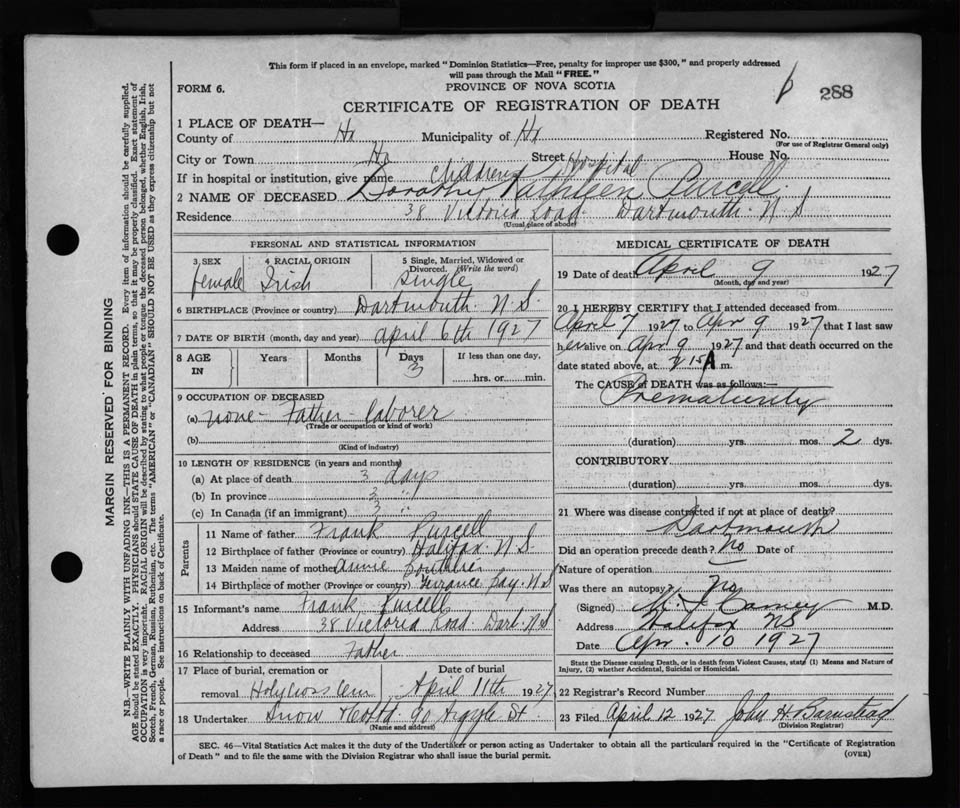 This form if placed in an envelope, marked "Dominion Statistics—Free, penalty for improper use $300," and properly addressed
will pass through the Mail "FREE."
FORM 6.
PROVINCE OF NOVA SCOTIA
288
CERTIFICATE OF REGISTRATION OF DEATH
1 PLACE OF DEATH—
County of Hx Municipality of Hx Registered No.
(For use of Registrar General only)
City or Town Hx Street House No.
If in hospital or institution, give name Childrens Hospital
2 NAME OF DECEASED Dorothy Kathleen Purcell
Residence 38 Victoria Road. Dartmouth. N S
(Usual place of abode)
PERSONAL AND STATISTICAL INFORMATION
3 SEX 4 RACIAL ORIGIN 5 Single, Married, Widowed or
Divorced. (Write the word)
female Irish Single
6 BIRTHPLACE (Province or country) Dartmouth. N. S.
7 DATE OF BIRTH (month, day and year) april 6th 1927
8 AGE IN Years Months Days 3 If less than one day,
hrs. or min.
9 OCCUPATION OF DECEASED
(a) none - Father - laborer
(Trade or occupation or kind of work)
(b)
(Kind of industry)
10 LENGTH OF RESIDENCE (in years and months)
(a) At place of death 3 days
(b) In province 3 "
(c) In Canada (if an immigrant) 3 "
Parents
11 Name of father Frank Purcell
12 Birthplace of father (Province or country) Halifax. N. S.
13 Maiden name of mother Annie
14 Birthplace of mother (Province or country) Terrance Bay. N S
15 Informant's name Frank Purcell
Address 38 Victoria Road. Dart. N S
16 Relationship to deceased Father
17 Place of burial, cremation or Date of burial
removal Holy Cross Cem April 11th 1927
18 Undertaker Snow & Co Ltd 90 Argyle St.
(Name and address)
MEDICAL CERTIFICATE OF DEATH
19 Date of death April 9 1927
(Month, day and year)
20 I HEREBY CERTIFY that I attended deceased from
April 7 1927 to Apr 9 1927 that I last saw
her alive on Apr 9 1927 and that death occurred on the
date stated above, at 15 A m.
The CAUSE of DEATH was as follows:—
Prematurity
(duration) yrs. mos. 2 dys.
CONTRIBUTORY
(duration) yrs. mos. dys.
21 Where was disease contracted if not at place of death?
Dartmouth
Did an operation precede death? No Date of
Nature of operation
Was there an autopsy? No
(Signed) M.D.
Address Halifax NS
Date Apr. 10 1927
State the Disease causing Death, or in death from Violent Causes, state (1) Means and Nature of
Injury, (2) whether Accidental, Suicidal or Homicidal.
22 Registrar's Record Number
23 Filed April 12 1927 John H Barnstead
(Division Registrar)
SEC. 46—Vital Statistics Act makes it the duty of the Undertaker or person acting as Undertaker to obtain all the particulars required in the "Certificate of Registration
of Death" and to file the same with the Division Registrar who shall issue the burial permit.
(OVER)
MARGIN RESERVED FOR BINDING
N.B.—WRITE PLAINLY WITH UNFADING INK—THIS IS A PERMANENT RECORD. Every item of information should be carefully supplied.
AGE should be stated EXACTLY. PHYSICIANS should STATE CAUSE OF DEATH in plain terms, so that it may be properly classified. Exact statement of
OCCUPATION is very important. RACIAL ORIGIN will be described by stating to what people or tongue the deceased person belonged, whether English, Irish,
Scotch, French, German, Russian, Ruthenian, etc. The terms "AMERICAN" or "CANADIAN" SHOULD NOT BE USED as they express citizenship but not
a race or people. See instructions on back of Certificate.